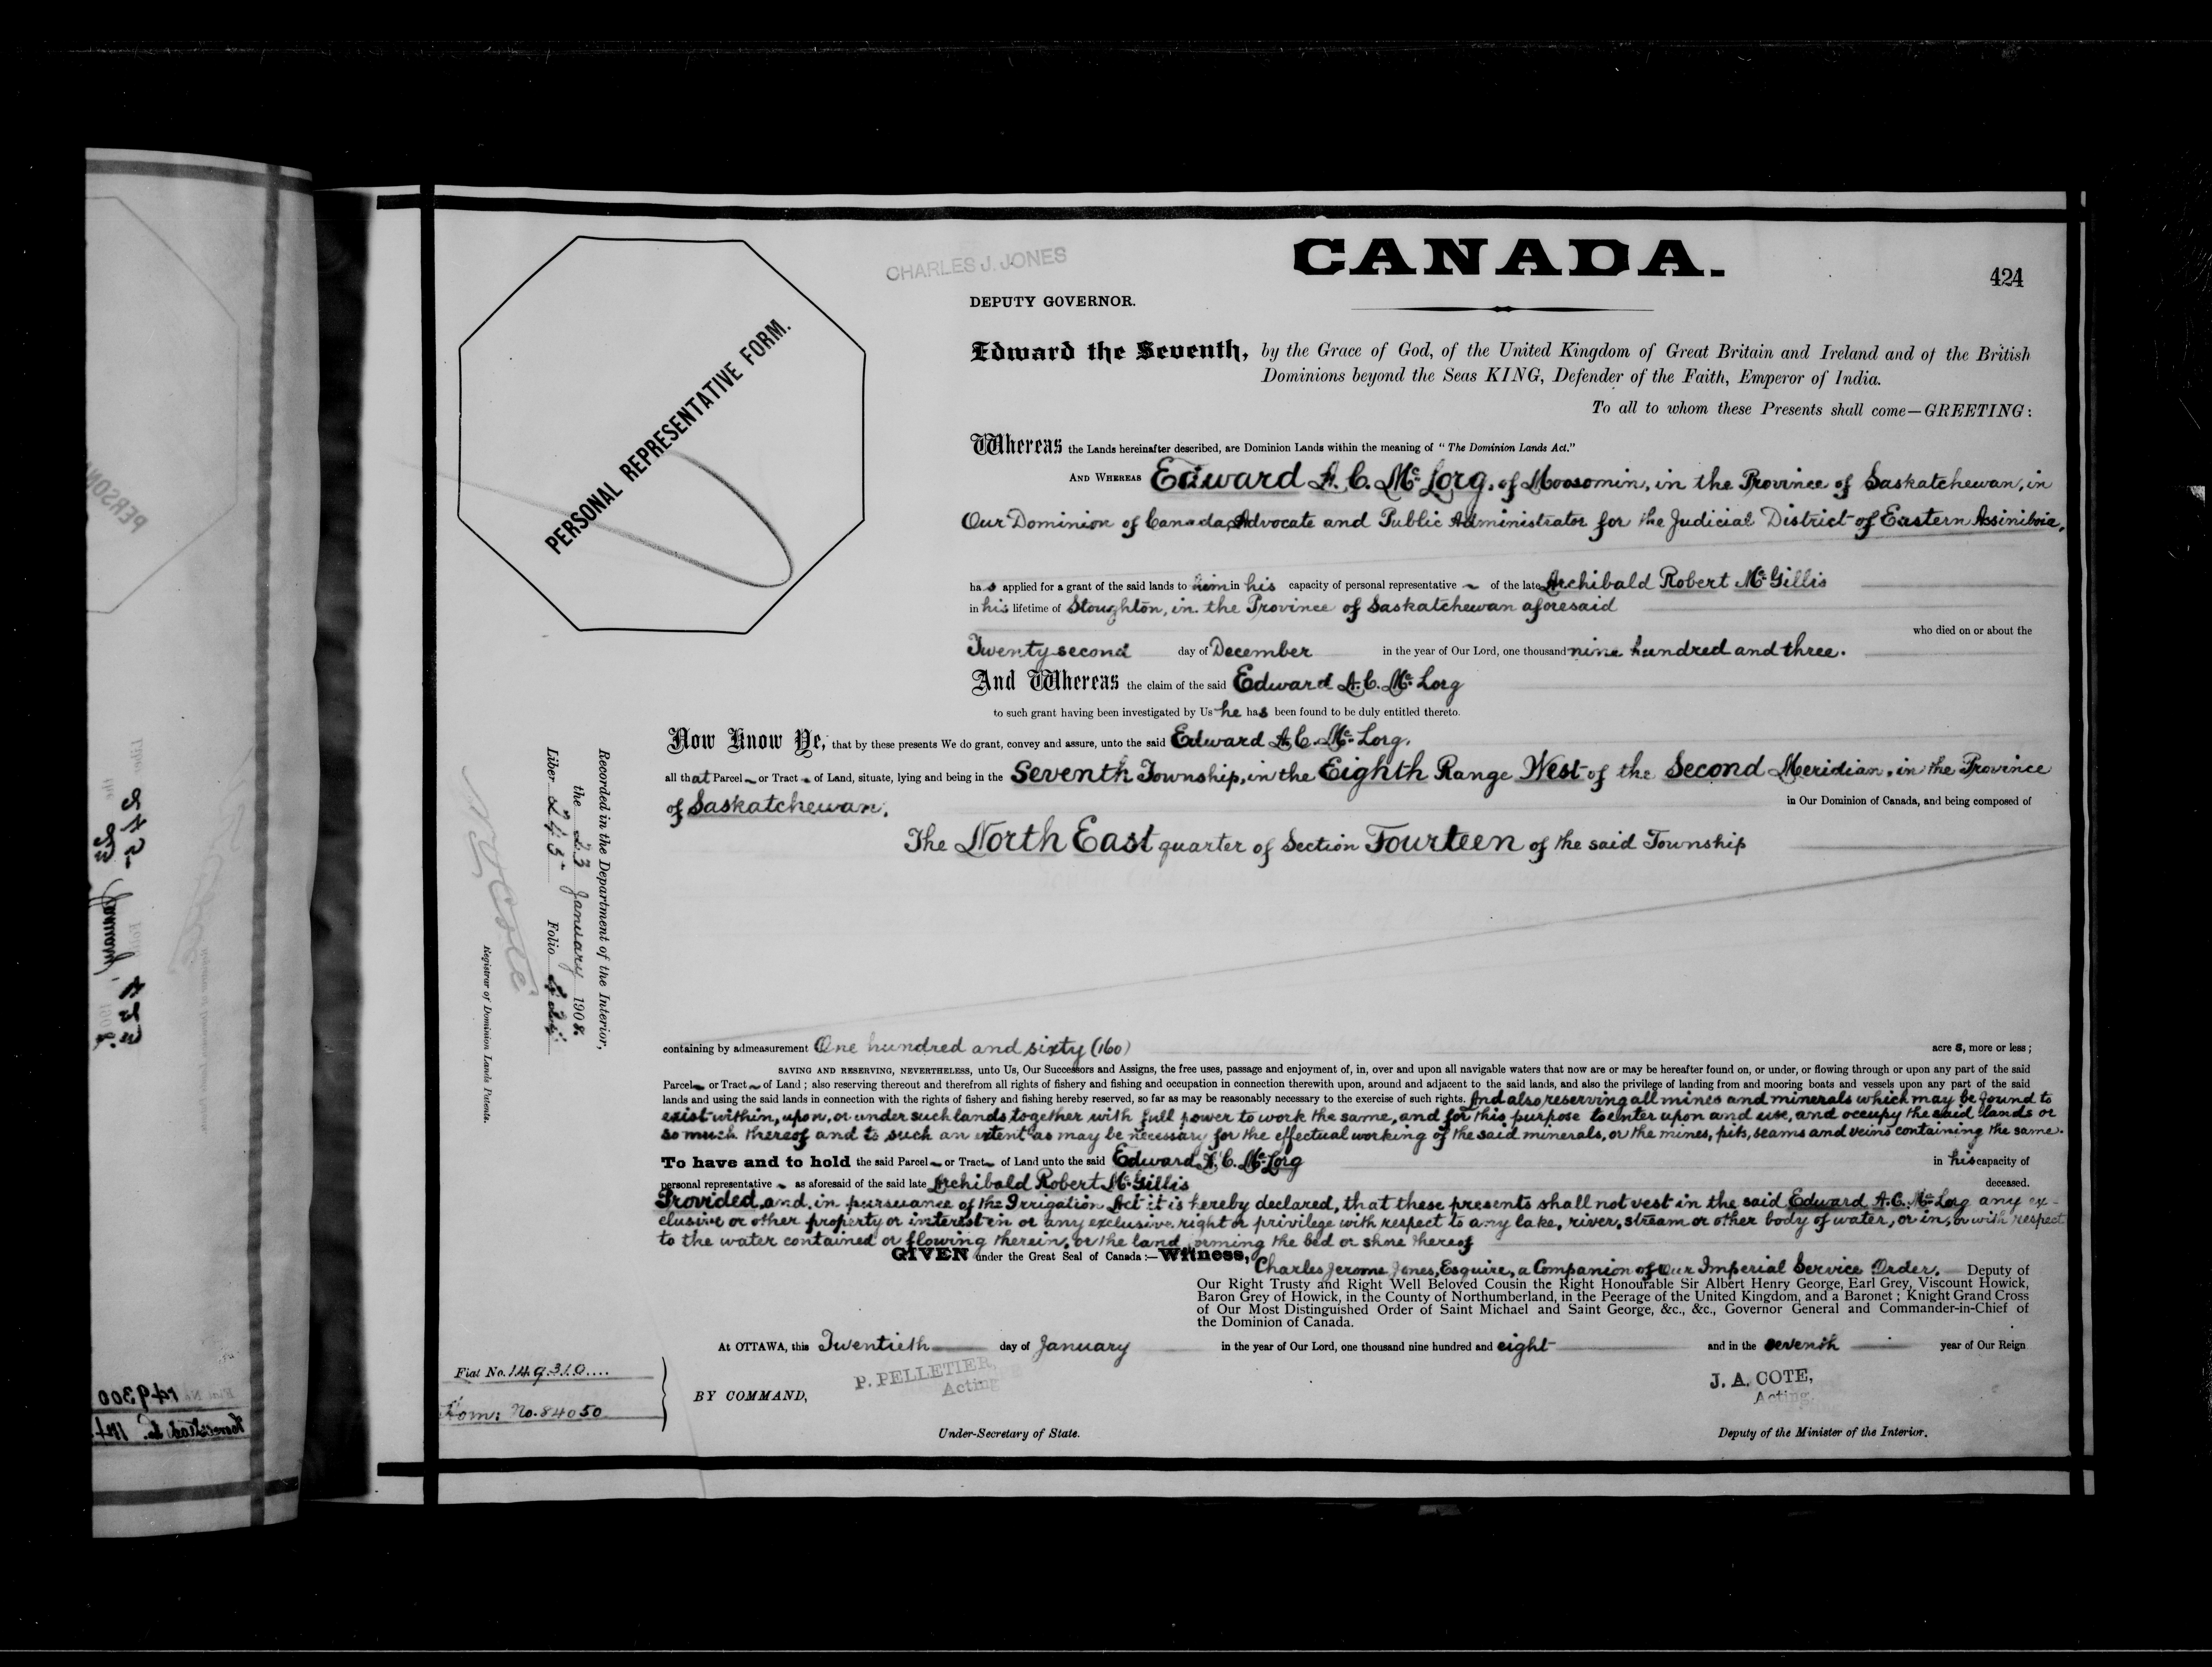 CHARLES J. JONES
CANADA.
424
DEPUTY GOVERNOR.
PERSONAL REPRESENTATIVE FORM.
Edward the Seventh, by the Grace of God, of the United Kingdom of Great Britain and Ireland and of the British
Dominions beyond the Seas KING, Defender of the Faith, Emperor of India.
To all to whom these Presents shall come—GREETING:
Whereas the Lands hereinafter described, are Dominion Lands within the meaning of "The Dominion Lands Act."
AND WHEREAS Edward A. C. Mc Lorg, of Moosomin, in the Province of Saskatchewan, in
Our Dominion of Canada, Advocate and Public Administrator for the Judicial District of Eastern Assiniboia,
has applied for a grant of the said lands to him in his capacity of personal representative of the late Archibald Robert Mc Gillis
in his lifetime of Stoughton, in the Province of Saskatchewan aforesaid
who died on or about the
Twenty second day of December in the year of Our Lord, one thousand nine hundred and three.
And Whereas the claim of the said Edward A. C. Mc Lorg
to such grant having been investigated by Us he has been found to be duly entitled thereto.
Now Know Ye, that by these presents We do grant, convey and assure, unto the said Edward A. C. Mc Lorg,
all that Parcel or Tract of Land, situate, lying and being in the Seventh Township, in the Eighth Range West of the Second Meridian, in the Province
of Saskatchewan, in Our Dominion of Canada, and being composed of
The North East quarter of Section Fourteen of the said Township
Recorded in the Department of the Interior,
the 23 January 1908.
Liber 245 Folio 424
N O Coté
Registrar of Dominion Lands Patents.
containing by admeasurement One hundred and sixty (160) acres, more or less;
SAVING AND RESERVING, NEVERTHELESS, unto Us, Our Successors and Assigns, the free uses, passage and enjoyment of, in, over and upon all navigable waters that now are or may be hereafter found on, or under, or flowing through or upon any part of the said
Parcel or Tract of Land; also reserving thereout and therefrom all rights of fishery and fishing and occupation in connection therewith upon, around and adjacent to the said lands, and also the privilege of landing from and mooring boats and vessels upon any part of the said
lands and using the said lands in connection with the rights of fishery and fishing hereby reserved, so far as may be reasonably necessary to the exercise of such rights. And also reserving all mines and minerals which may be found to
exist within, upon, or under such lands together with full power to work the same, and for this purpose to enter upon and use, and occupy the said lands or
so much thereof and to such an extent as may be necessary for the effectual working of the said minerals, or the mines, pits, seams and veins containing the same.
To have and to hold the said Parcel or Tract of Land unto the said Edward A. C. Mc Lorg in his capacity of
personal representative as aforesaid of the said late Archibald Robert Mc Gillis deceased.
Provided, and, in pursuance of the Irrigation Act it is hereby declared, that these presents shall not vest in the said Edward A. C. Mc Lorg any ex-
clusive or other property or interest in or any exclusive right or privilege with respect to any lake, river, stream or other body of water, or in, or with respect
to the water contained or flowing therein, or the land forming the bed or shore thereof
GIVEN under the Great Seal of Canada:—Witness, Charles Jerome Jones, Esquire, a Companion of Our Imperial Service Order, Deputy of
Our Right Trusty and Right Well Beloved Cousin the Right Honourable Sir Albert Henry George, Earl Grey, Viscount Howick,
Baron Grey of Howick, in the County of Northumberland, in the Peerage of the United Kingdom, and a Baronet; Knight Grand Cross
of Our Most Distinguished Order of Saint Michael and Saint George, &c., &c., Governor General and Commander-in-Chief of
the Dominion of Canada.
At OTTAWA, this Twentieth day of January in the year of Our Lord, one thousand nine hundred and eight and in the seventh year of Our Reign
Fiat No. 149310....
Hom: No. 84050
BY COMMAND,
P. PELLETIER,
Acting
Under-Secretary of State.
J. A. COTE,
Acting.
Deputy of the Minister of the Interior.